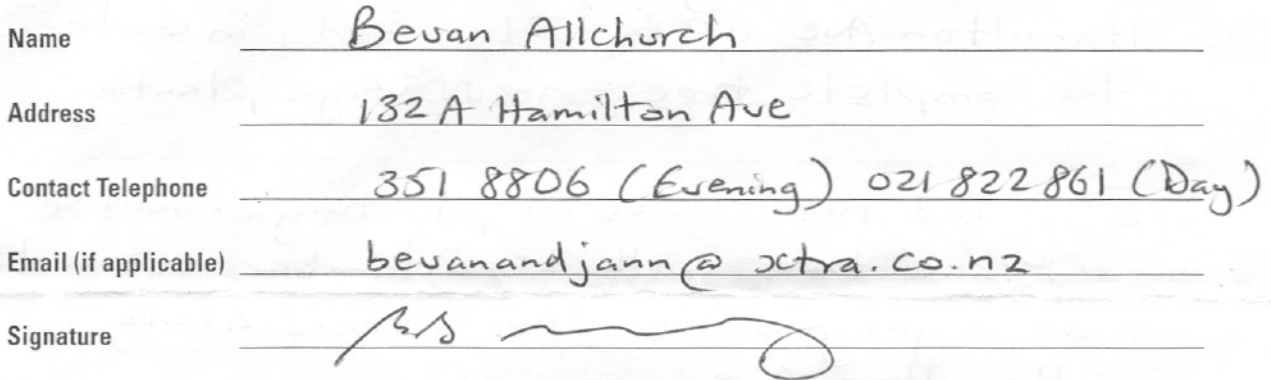 Name Bevan Allchurch
Address 132 A Hamilton Ave
Contact Telephone 351 8806 (Evening) 021 822 861 (Day)
Email (if applicable) bevanandjann@xtra.co.nz
Signature